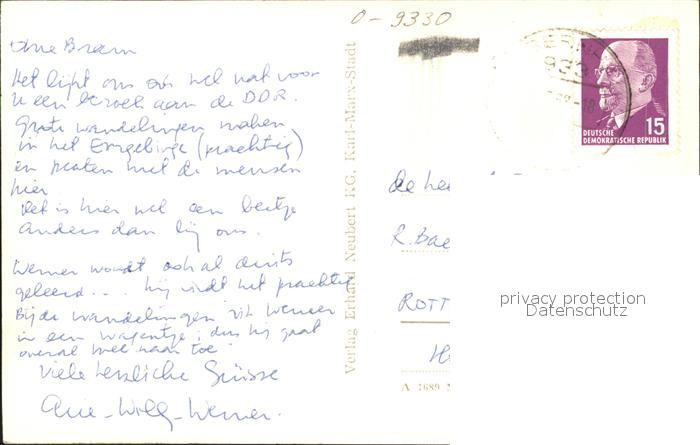 0-9330
Bram
Het lijkt ons ook wel wat voor
U een bezoek aan de DDR.
Grote wandelingen maken
in het Erzgebirge (prachtig)
en praten met de mensen
hier
Het is hier wel een beetje
anders dan bij ons.
Werner wordt ook al duits
geleerd... hij vindt het prachtig
Bij de wandelingen zit Werner
in een wagentje, dus hij gaat
overal mee naar toe
Viele herzliche Grüsse
Willy - Werner.
Verlag Erhard Neubert KG, Karl-Marx-Stadt
933
DEUTSCHE
DEMOKRATISCHE REPUBLIK
15
de he
R. Bae
ROTT
H
A 1689
privacy protection
Datenschutz